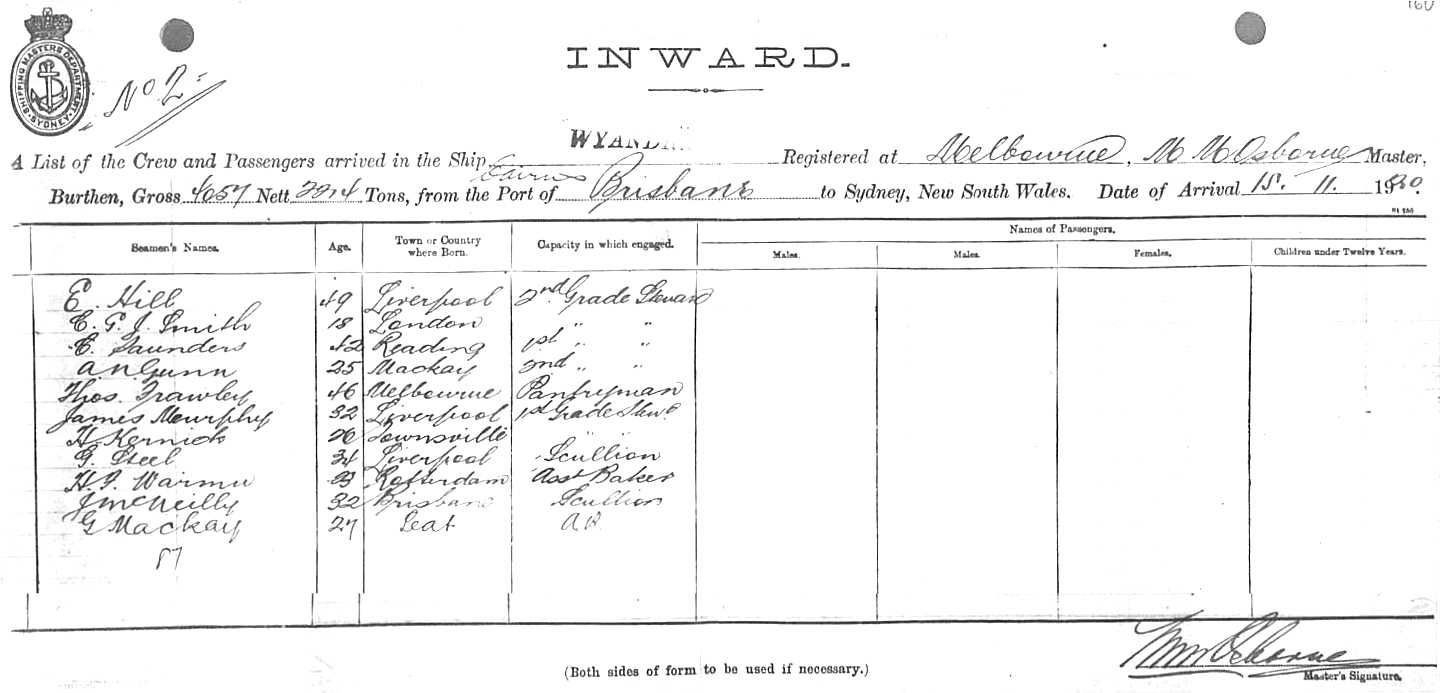 160
SHIPPING MASTERS DEPARTMENT
SYDNEY
No 2
INWARD.
WYAND
A List of the Crew and Passengers arrived in the Ship Registered at Melbourne, Master,
Cairns
Burthen, Gross 4057 Nett 2214 Tons, from the Port of Brisbane to Sydney, New South Wales. Date of Arrival 15. 11. 19
Seamen's Names. Age. Town or Country where Born. Capacity in which engaged. Names of Passengers.
Males. Males. Females. Children under Twelve Years.
E. Hill 49 Liverpool 2nd Grade Steward
E. G. J. Smith 18 London " "
E. Saunders 42 Reading 1st " "
A. N. Gunn 25 Mackay 2nd " "
Thos. Frawley 46 Melbourne Pantryman
James Meurphy 32 Liverpool 1st Grade Stew
H. Kernick 26 Townsville " "
G. Steel 34 Liverpool Scullion
H. J. 23 Rotterdam Asst Baker
J McNeilly 32 Brisbane Scullion
G Mackay 27 AB
87
(Both sides of form to be used if necessary.)
Master's Signature.